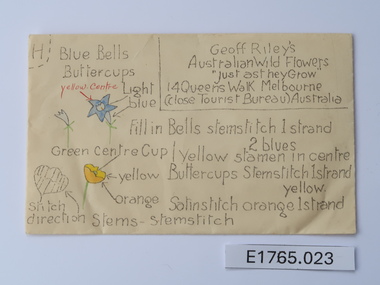 H
Blue Bells
Buttercups
yellow centre
Light
blue
Geoff Riley's
Australian Wild Flowers
"just as they Grow"
14 Queens Walk Melbourne
(close Tourist Bureau) Australia
Fill in Bells stemstitch 1 strand
2 blues
Green Centre Cup
yellow stamen in centre
yellow
Buttercups Stemstitch 1 strand
yellow
orange
Satinstitch orange 1 strand
stitch
direction
Stems-stemstitch
E1765.023